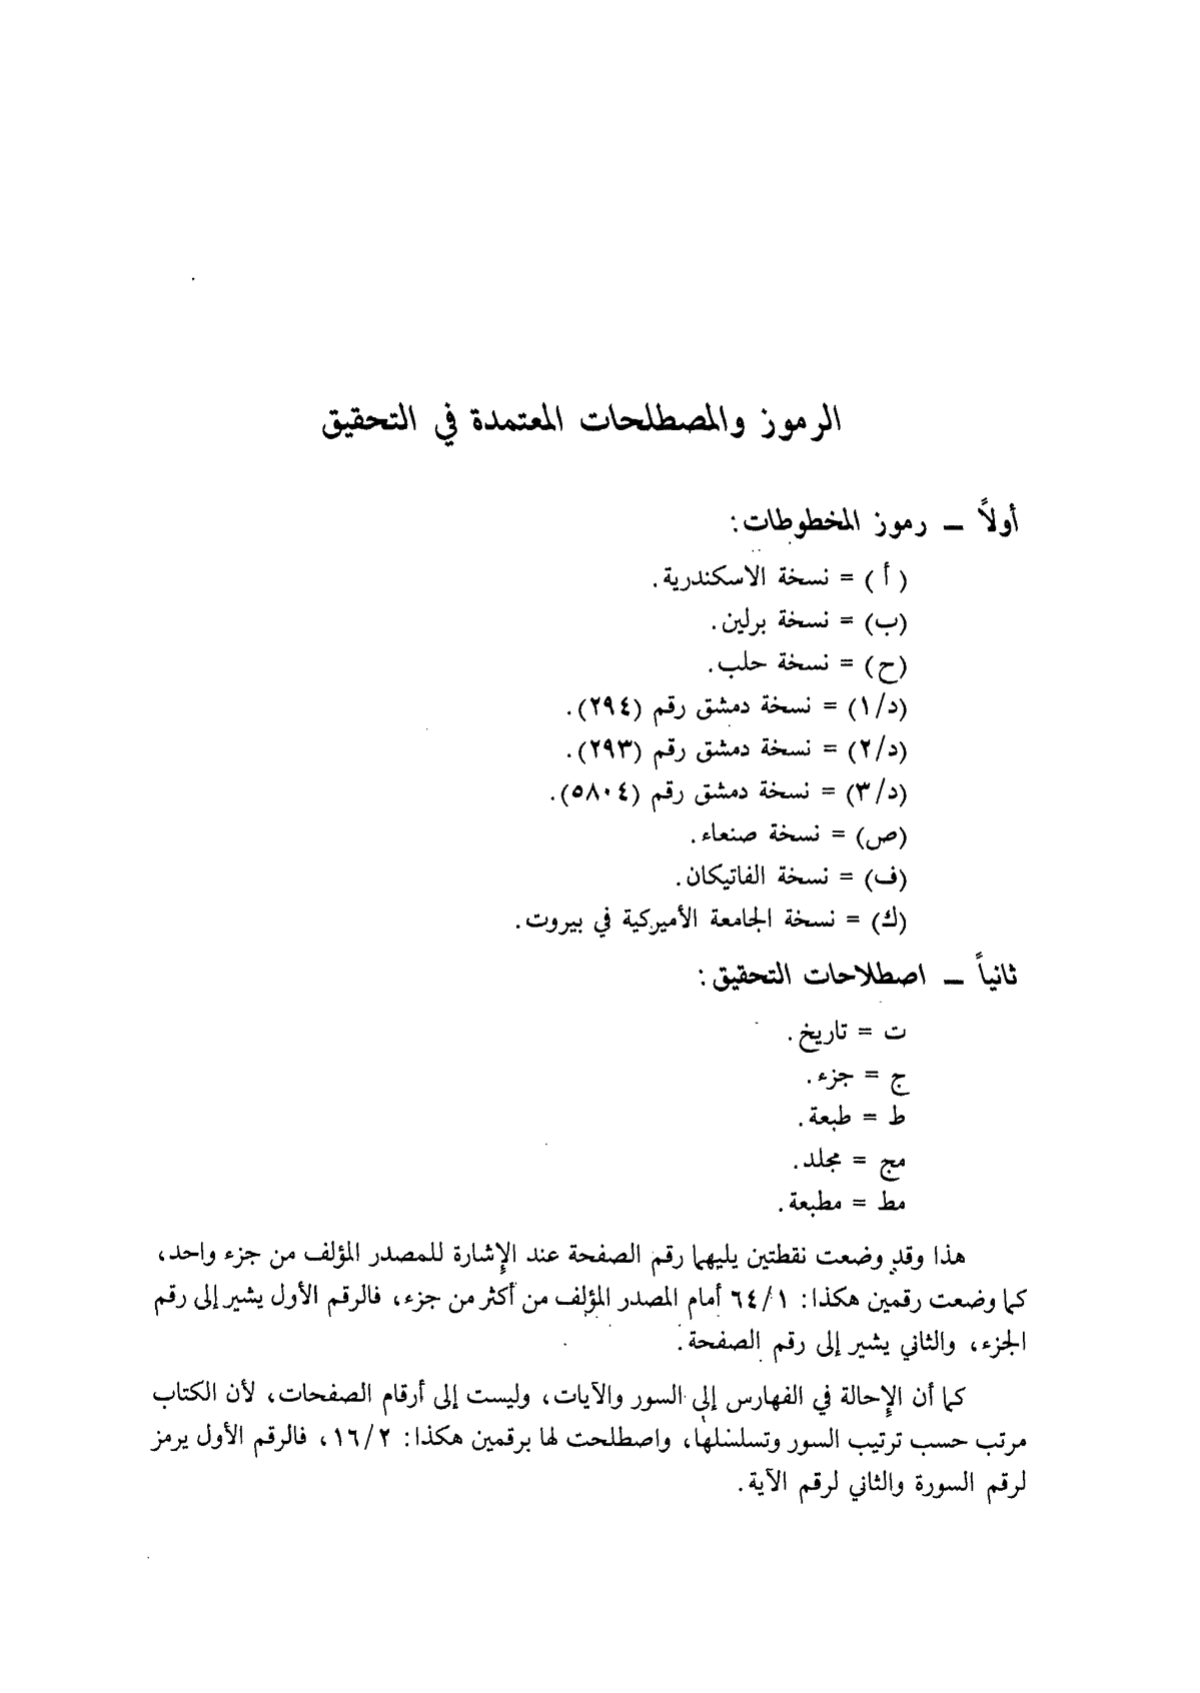 الرموز والمصطلحات المعتمدة في التحقيق
أولاً ــ رموز المخطوطات:
( أ ) = نسخة الاسكندرية.
(ب) = نسخة برلين.
(ح) = نسخة حلب.
(د/١) = نسخة دمشق رقم (٢٩٤).
(د/٢) = نسخة دمشق رقم (٢٩٣).
(د/٣) = نسخة دمشق رقم (٥٨٠٤).
(ص) = نسخة صنعاء.
(ف) = نسخة الفاتيكان.
(ك) = نسخة الجامعة الأميركية في بيروت.
ثانياً ــ اصطلاحات التحقيق:
ت = تاريخ.
ج = جزء.
ط = طبعة.
مج = مجلد.
مط = مطبعة.
هذا وقد وضعت نقطتين يليهما رقم الصفحة عند الإشارة للمصدر المؤلف من جزء واحد،
كما وضعت رقمين هكذا: ٦٤/١ أمام المصدر المؤلف من أكثر من جزء، فالرقم الأول يشير إلى رقم
الجزء، والثاني يشير إلى رقم الصفحة.
كما أن الإحالة في الفهارس إلى السور والآيات، وليست إلى أرقام الصفحات، لأن الكتاب
مرتب حسب ترتيب السور وتسلسلها، واصطلحت لها برقمين هكذا: ١٦/٢، فالرقم الأول يرمز
لرقم السورة والثاني لرقم الآية.